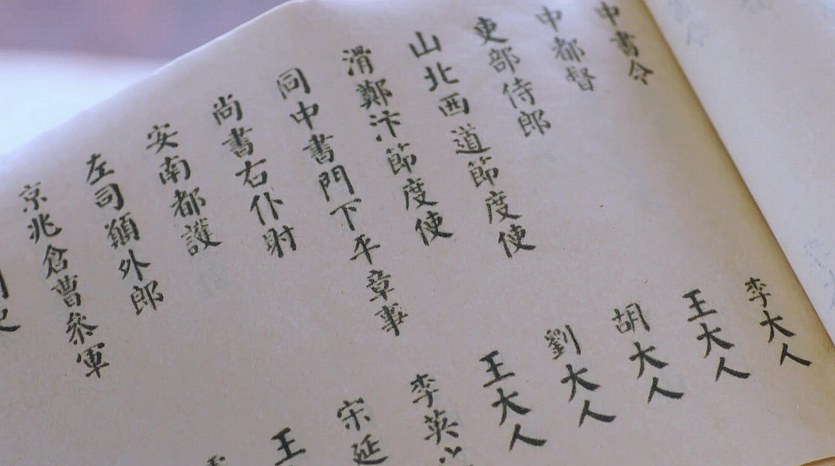 中書令 李大人
中都督 王大人
吏部侍郎 胡大人
山北西道節度使 劉大人
滑鄭汴節度使 王大人
同中書門下平章事 李英
尚書右仆射 宋延
安南都護 王
左司外郎
京兆倉曹參軍
史